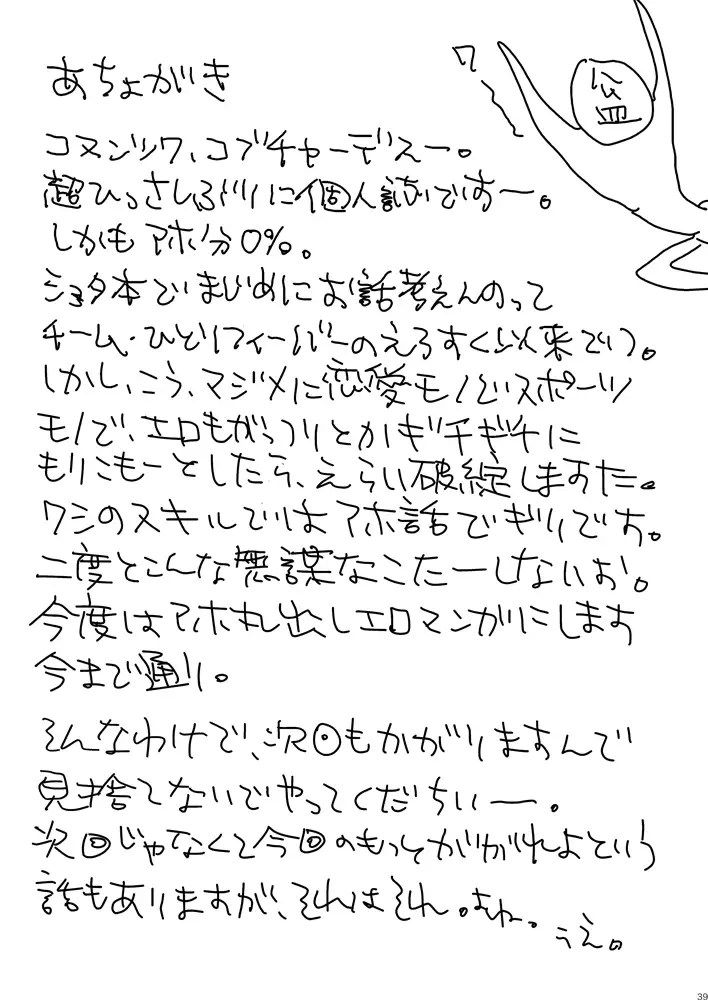 あちょがき
ワ
公
皿
コヌンツワ、コブチャーデえー。
超ひっさしぶりに個人誌ですー。
しかもアホ分0%。
ショタ本でまじめにお話考えんのって
チーム・ひとりフィーバーのえろすく以来でつ。
しかし、こう、マジメに恋愛モノでスポーツ
モノで、エロもがっつりとかギチギチに
もりこもーとしたら、えらい破綻しますた。
ワシのスキルではアホ話でぎりです。
二度とこんな無謀なこたーしないお。
今度はアホ丸出しエロマンガにします
今まで通り。
そんなわけで、次回もかがりますんで
見捨てないでやってくだちぃー。
次回じゃなくて今回のもっとがんがれよという
話もありますが、それはそれ。よね。
こえ。
39